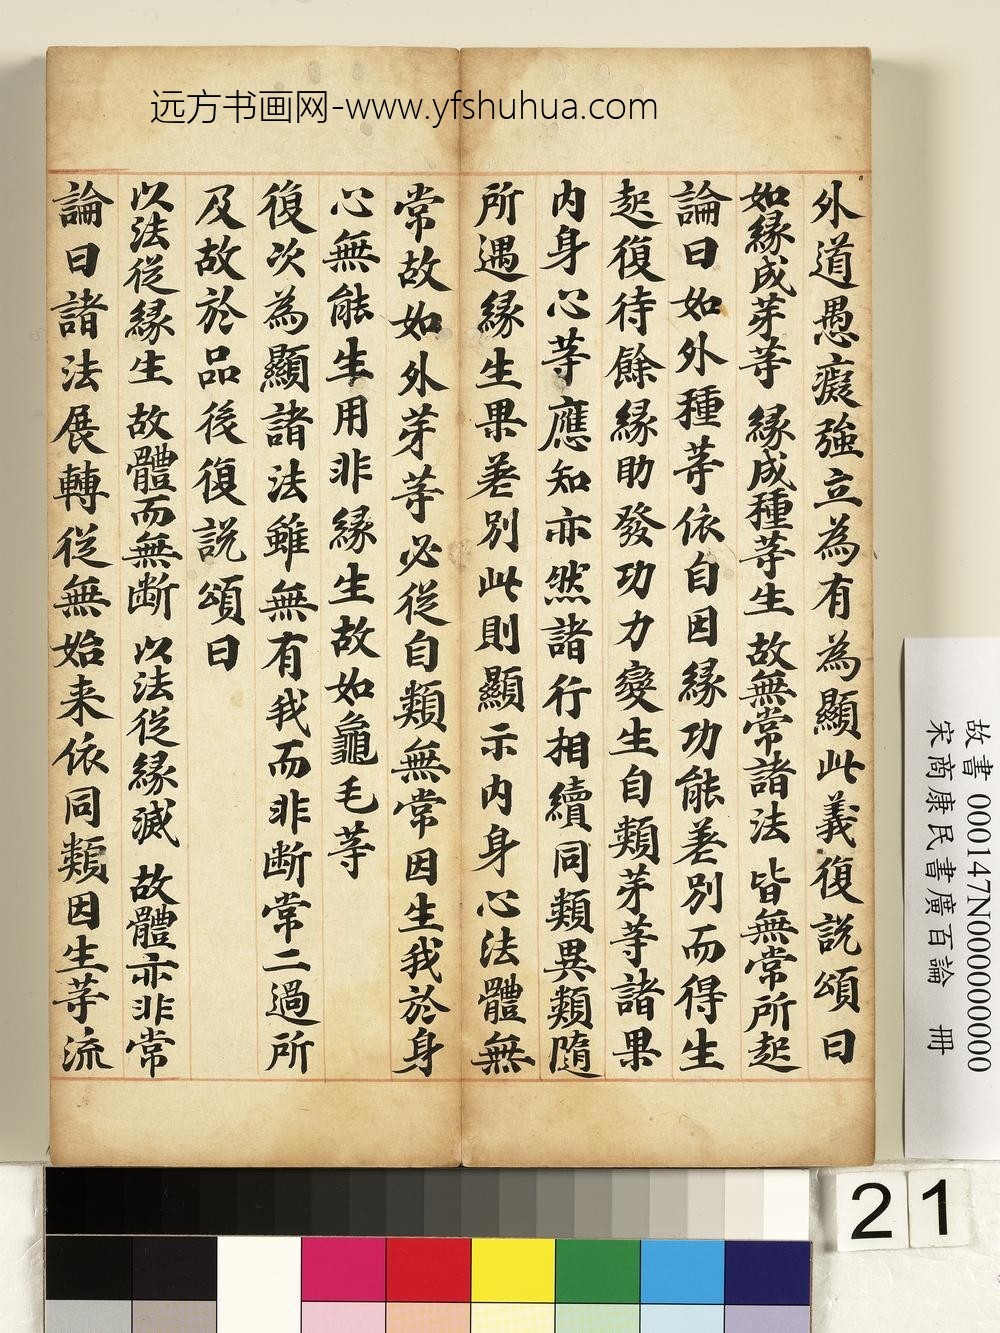 远方书画网-www.yfshuhua.com
外道愚癡強立為有為顯此義復説頌曰
如緣成芽等 緣成種等生 故無常諸法 皆無常所起
論曰如外種等依自因緣功能差別而得生
起復待餘緣助發功力變生自類芽等諸果
内身心等應知亦然諸行相續同類異類隨
所遇緣生果差別此則顯示内身心法體無
常故如外芽等必從自類無常因生我於身
心無能生用非緣生故如龜毛等
復次為顯諸法雖無有我而非斷常二過所
及故於品後復説頌曰
以法從緣生 故體而無断 以法從緣滅 故體亦非常
論曰諸法展轉從無始来依同類因生等流
故書 000147N000000000
宋商康民書廣百論 冊
21